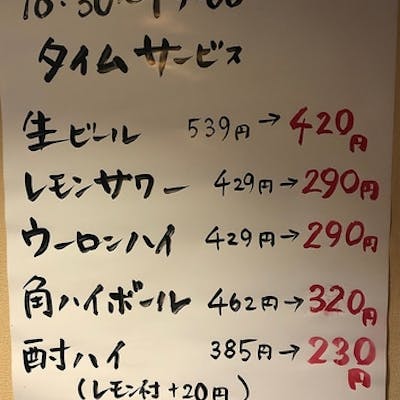 タイムサービス
生ビール 539円→420円
レモンサワー 429円→290円
ウーロンハイ 429円→290円
角ハイボール 462円→320円
酎ハイ 385円→230円
(レモン付+20円)